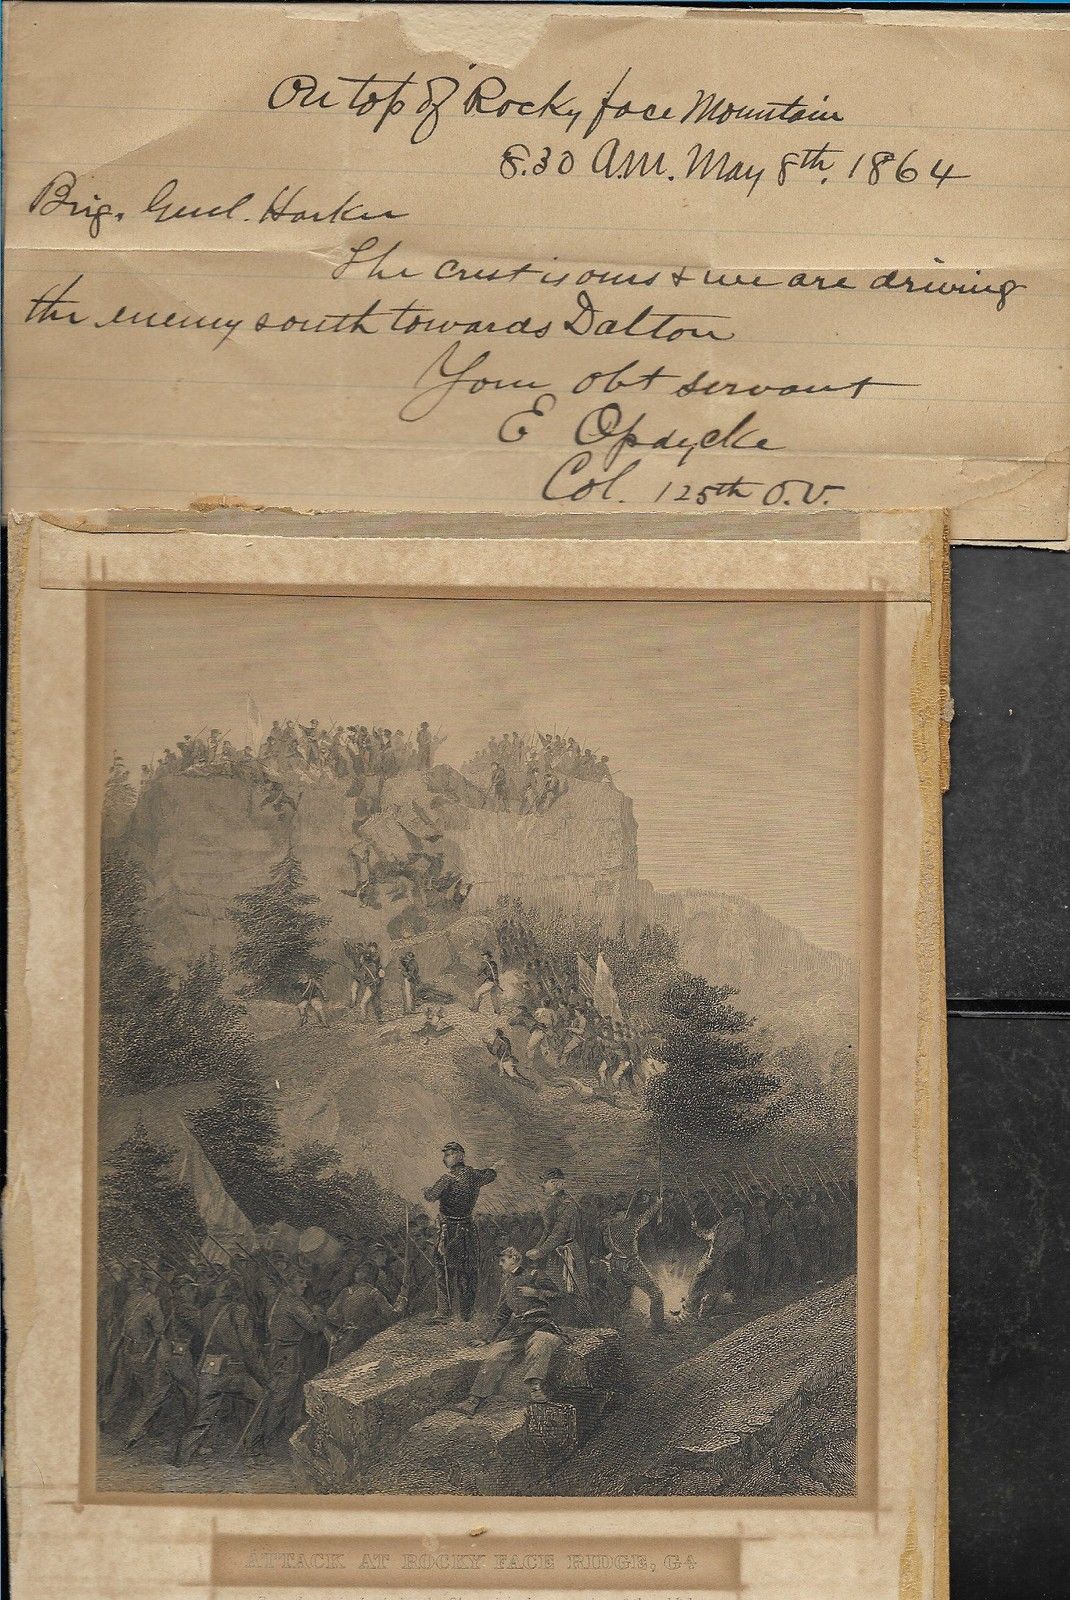 On top of Rocky face Mountain
8.30 A.M. May 8th. 1864
Brig. Genl. Harker
The crest is ours & we are driving
the enemy south towards Dalton
Your obt servant
E Opdycke
Col. 125th O.V.
ATTACK AT ROCKY FACE RIDGE, GA